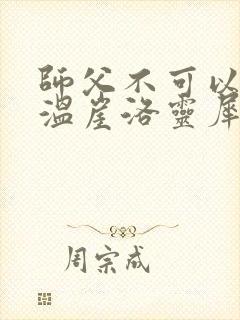 師父不可以
溫崖洛靈犀
周宗成